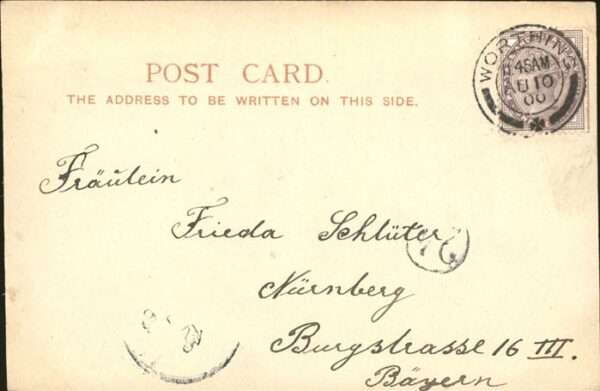 POST CARD.
THE ADDRESS TO BE WRITTEN ON THIS SIDE.
WORTHING
45AM
10
00
Fräulein
Frieda Schlüter
Nürnberg
Burgstrasse 16 III.
Bayern